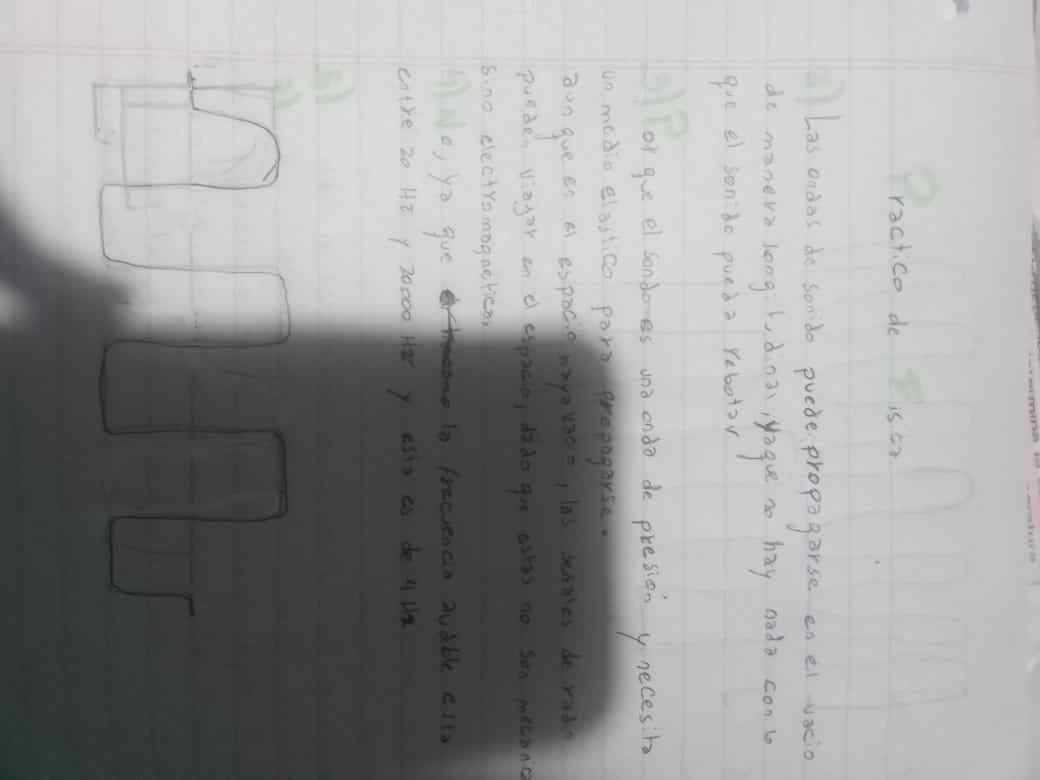 Practico de Fisica
2) Las ondas de sonido puede propagarse en el vacio
de manera longitudinal, ya que no hay nada con lo
que el sonido pueda rebotar
3) Por que el sonido es una onda de presión y necesita
un medio elastico para propagarse.
aun que en el espacio haya vacio, las señales de radio
pueden viajar en el espacio, dado que estas no son mecanica
sino electromagneticas
4) No, ya que la frecuencia audible esta
entre 20 Hz y 20000 Hz y esta es de 4 Hz
5)
a)